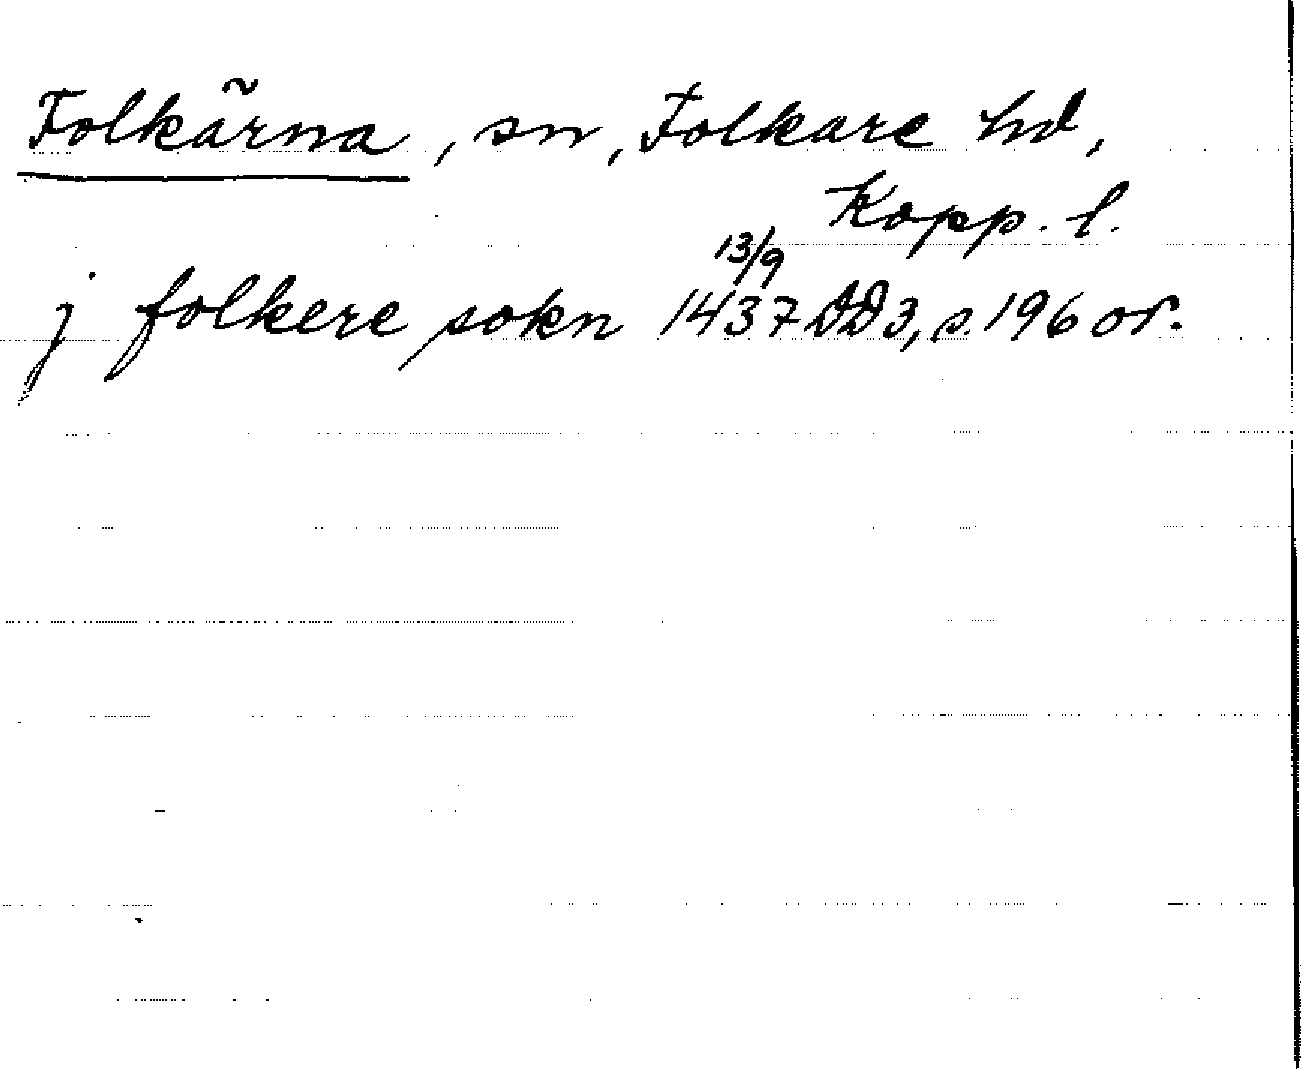 Folkärna, sn, Folkare hd,
Kopp. l.
j folkere sokn 13/9 1437 DD 3, s. 196 or.